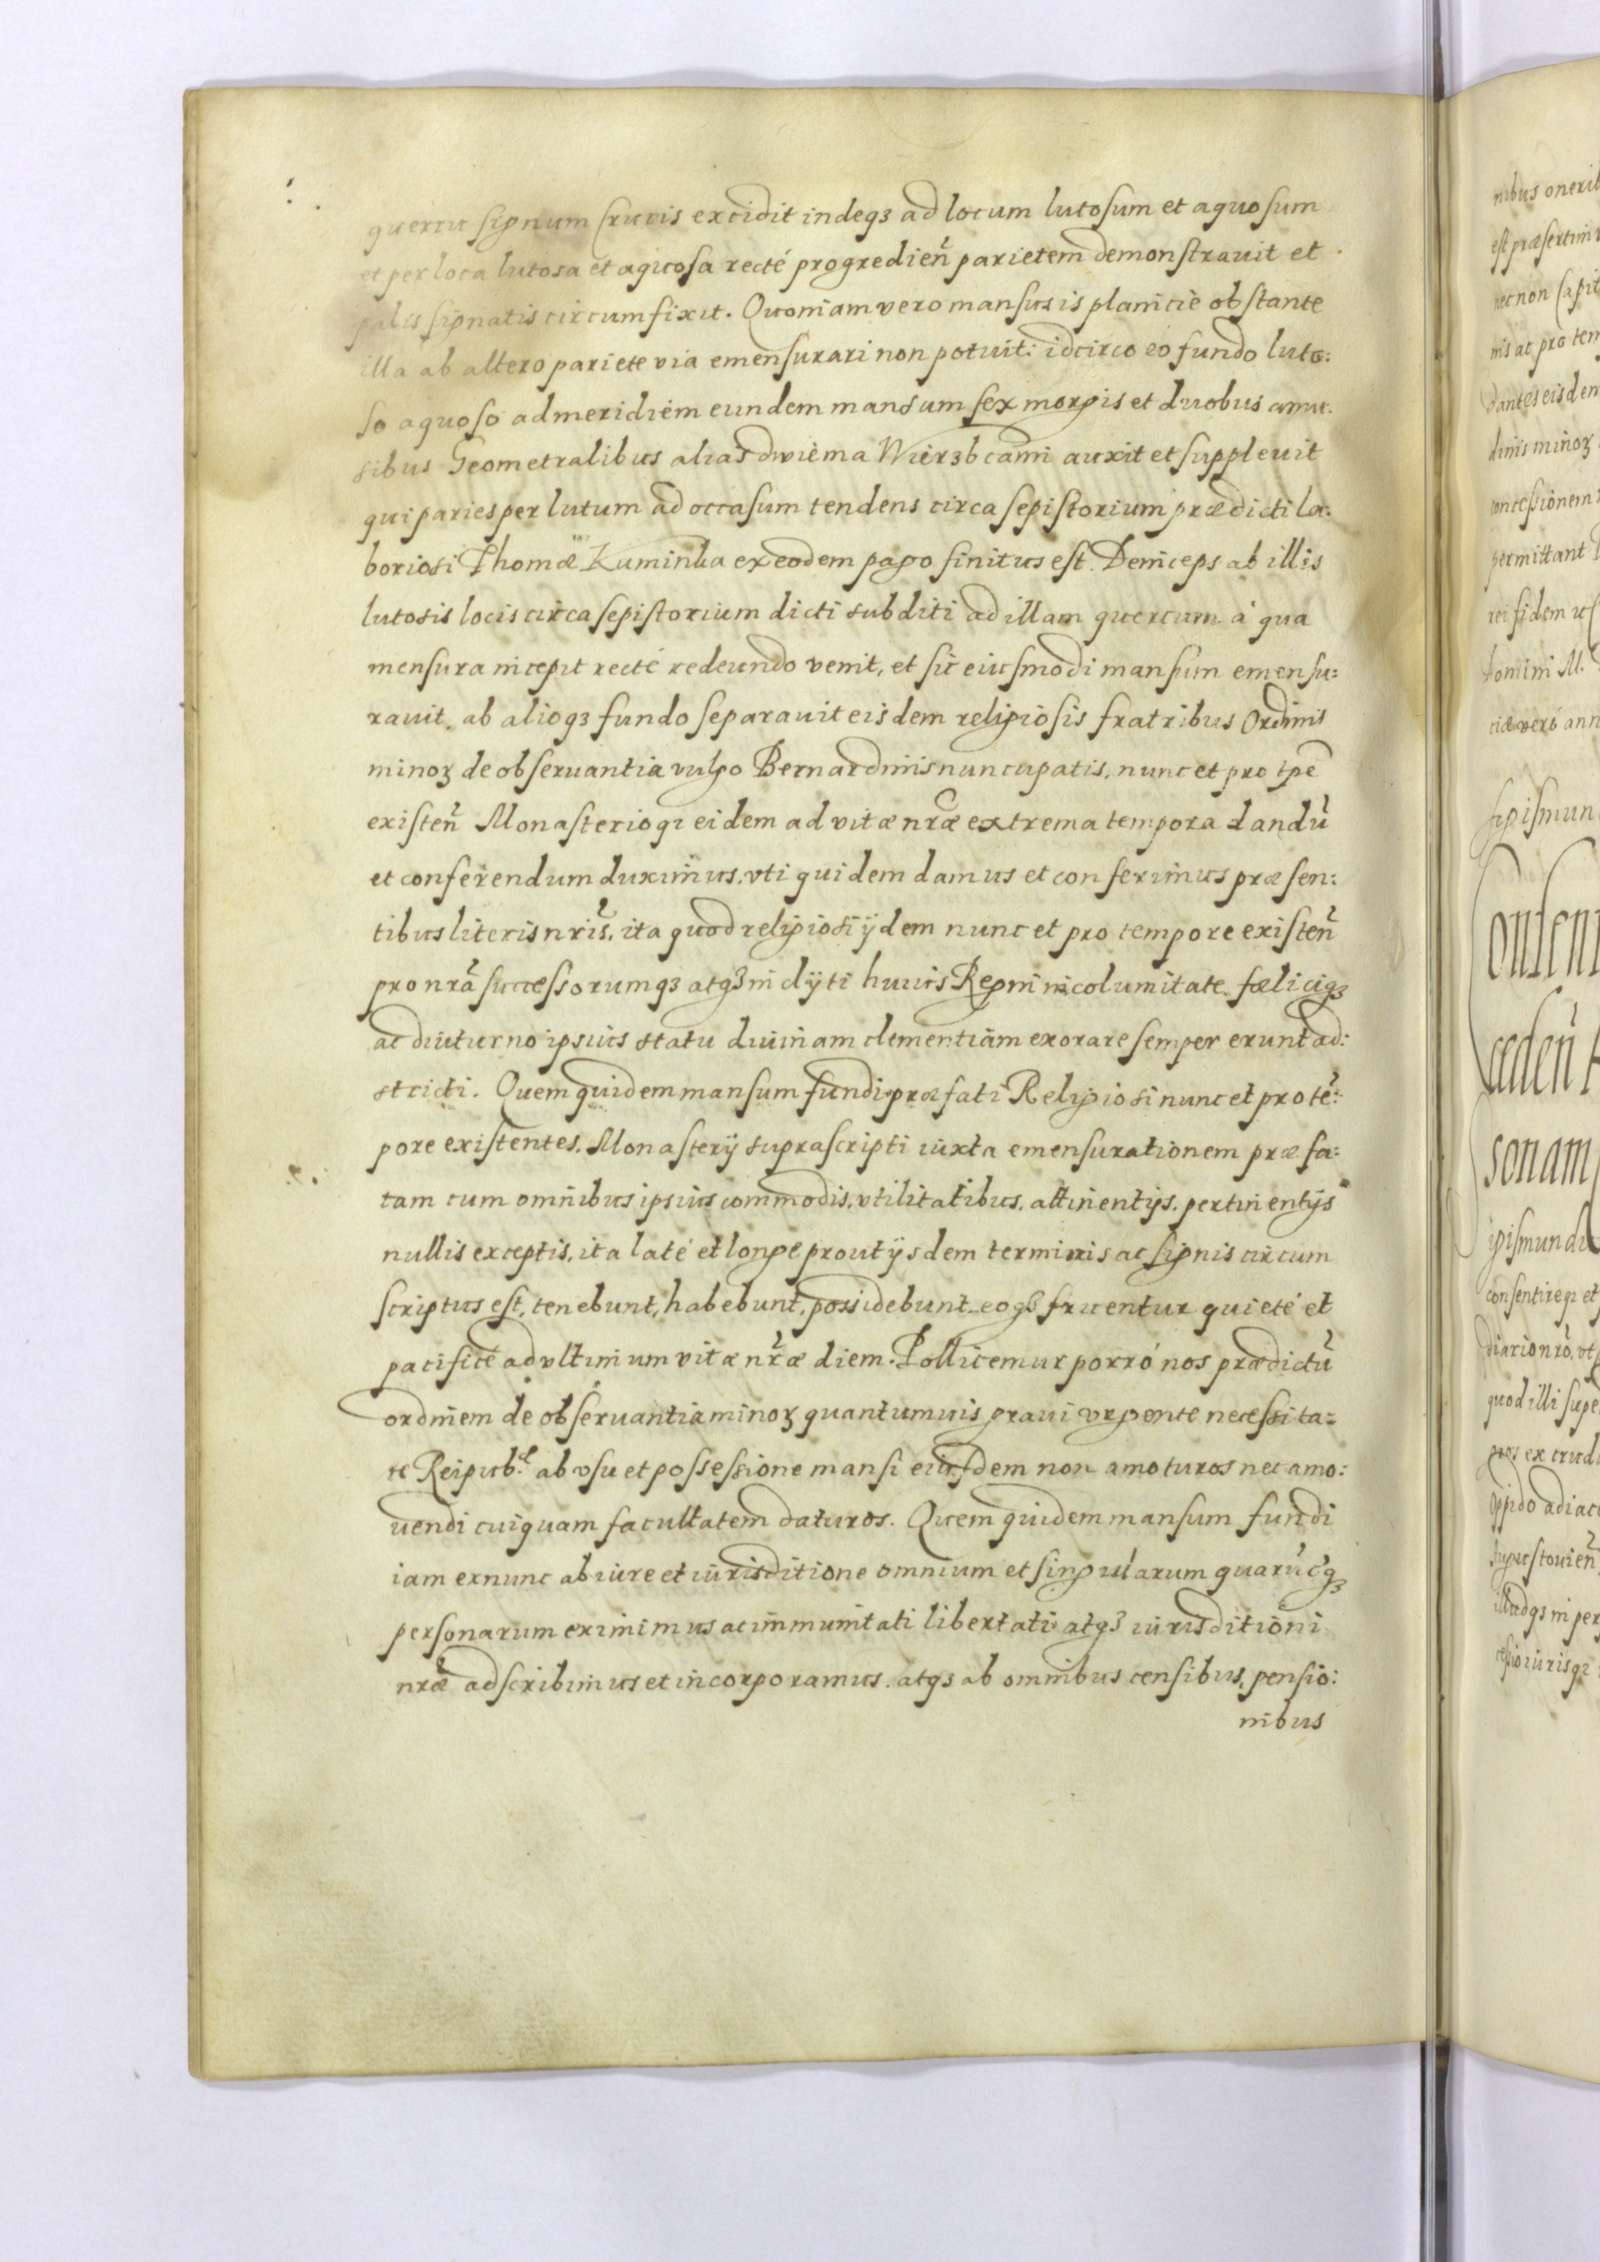 quercu signum Crucis excidit indeqꝫ ad locum lutosum et aquosum
et per loca lutosa et aquosa recté progredien̄ parietem demonstrauit et
palis signatis circumfixit. Quoniam vero mansus is planicie obstante
illa ab altero pariete via emensurari non potuit: idcirco eo fundo luto:
so aquoso ad meridiem eundem mansum sex morgis et duobus
sibus Geometralibus alias dwiema Wierzbcami auxit et suppleuit
qui paries per lutum ad occasum tendens circa sepistorium prædicti la:
boriosi Thomæ ex eodem pago finitus est. Deinceps ab illis
lutosis locis circa sepistorium dicti subditi ad illam quercum à qua
mensura incepit recté redeundo venit, et sic eiusmodi mansum emensu:
rauit, ab alioqꝫ fundo separauit eisdem religiosis fratribus Ordinis
minoꝝ de obseruantia vulgo Bernardinis nuncupatis, nunc et pro tp̄e
existen̄ Monasterioqꝫ eidem ad vitæ nr̄æ extrema tempora dandū
et conferendum duximus. vti quidem damus et conferimus præsen:
tibus literis nr̄is, ita quod religiosi ijdem nunc et pro tempore existen̄
pro nr̄a successorumqꝫ atqꝫ inclÿti huius Regni incolumitate fœliciqꝫ
ac diuturno ipsius statu diuinam clementiam exorare semper erunt ad:
stricti. Quem quidem mansum fundi præfati Religiosi nunc et pro tē:
pore existentes, Monasterij suprascripti iuxta emensurationem præfa:
tam cum omnibus ipsius commodis, vtilitatibus, attinentijs, pertinentijs
nullis exceptis, ita laté et longe prout ijsdem terminis ac signis circum
scriptus est, tenebunt, habebunt, possidebunt, eoqꝫ fruentur quieté et
pacificé ad vltimum vitæ nr̄æ diem. Pollicemur porró nos prædictū
ordinem de obseruantia minoꝝ quantumuis graui vrgente necessita:
te Reipub. ab vsu et possessione mansi eiusdem non amoturos nec amo:
uendi cuiquam facultatem daturos. Quem quidem mansum fundi
iam exnunc ab iure et iurisditione omnium et singularum quarūcqꝫ
personarum eximimus ac immunitati libertati atqꝫ iurisditioni
nr̄æ adscribimus et incorporamus. atqꝫ ab omnibus censibus, pensio:
nibus
nibus
est præsertim
necnon Capit
nis ac pro tem
dantes eisdem
dinis minoꝝ
concessionem
permittant
rei fidem
domini M.
ciæ veró ann
Sigismun
onsen
ceden̄
sonam
igismundu
consentireqꝫ et
diario nr̄o, vt
quod illi supe
oppido adiac